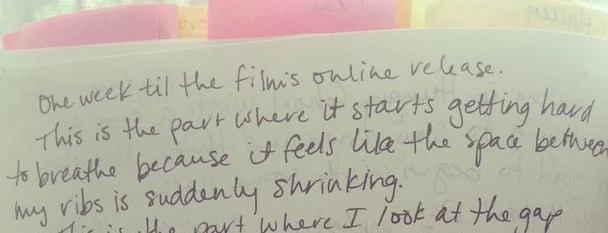 One week til the film's online release.
This is the part where it starts getting hard
to breathe because it feels like the space between
my ribs is suddenly shrinking.
This is the part where I look at the gap